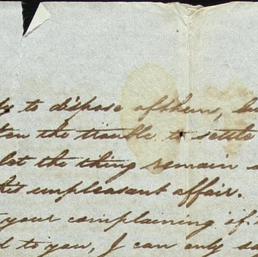 to dispose of them, 
the trouble to settle
let the thing remain
unpleasant affair.
your complaining if
to you, I can only